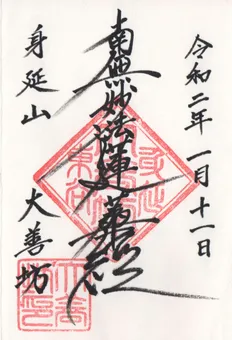 令和二年 一月十一日
南無妙法蓮華経
身延山 大善坊